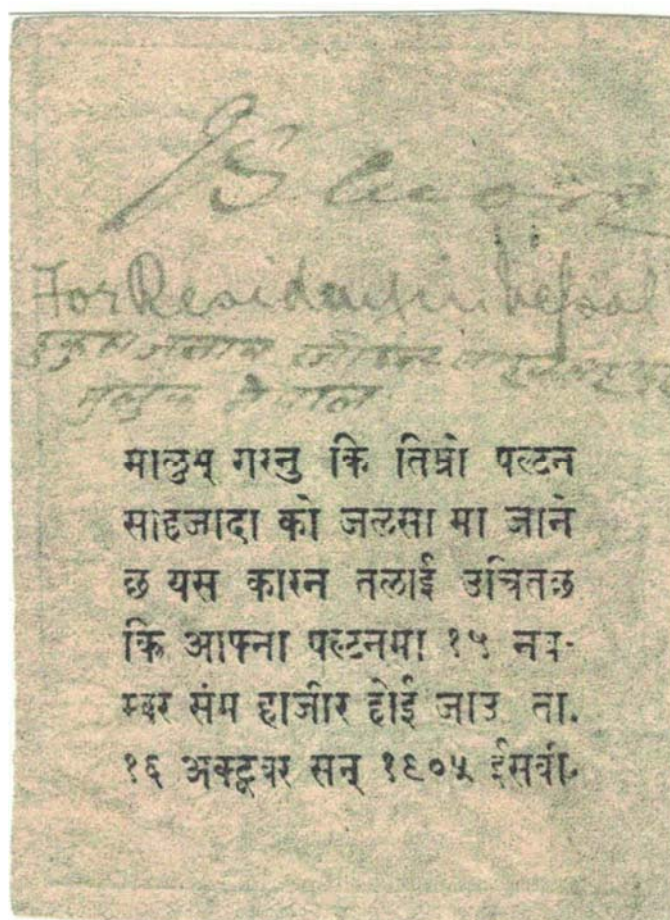 For Resident in Nepal
मुलुक नेपाल
मालुम् गरनु कि तिम्रो पल्टन
साहजादा को जलसा मा जाने
छ यस कारन तलाई उचितछ
कि आफ्ना पल्टनमा १५ नव-
म्बर संम हाजीर होई जाउ ता.
१६ अक्टूवर सन् १९०५ ईसवी.